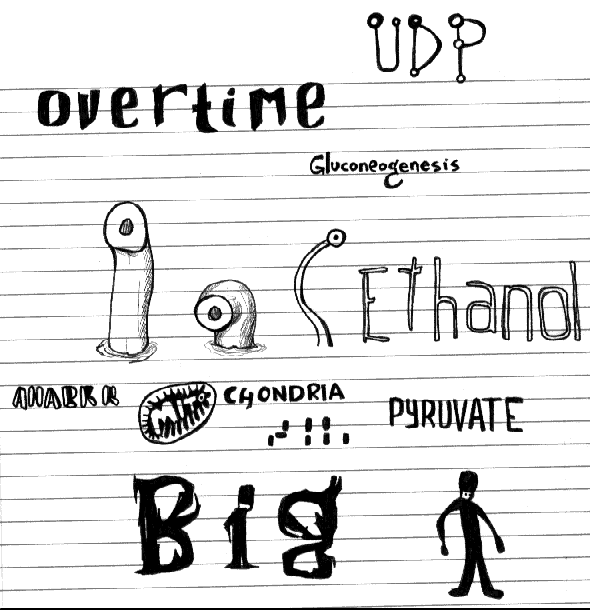 UDP
overtime
Gluconeogenesis
Ethanol
CHONDRIA
PYRUVATE
Big